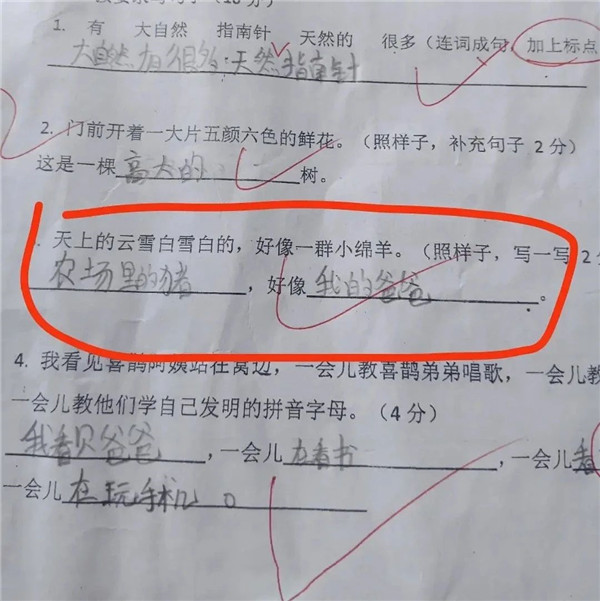 1. 有 大自然 指南针 天然的 很多(连词成句,加上标点
大自然有很多天然指南针
2. 门前开着一大片五颜六色的鲜花。(照样子,补充句子 2 分)
这是一棵高大的树。
. 天上的云雪白雪白的,好像一群小绵羊。(照样子,写一写 2
农场里的猪,好像我的爸爸。
4. 我看见喜鹊阿姨站在窝边,一会儿教喜鹊弟弟唱歌,一会儿教
一会儿教他们学自己发明的拼音字母。(4 分)
我看见爸爸,一会儿在看书,一会儿看
一会儿在玩手机。